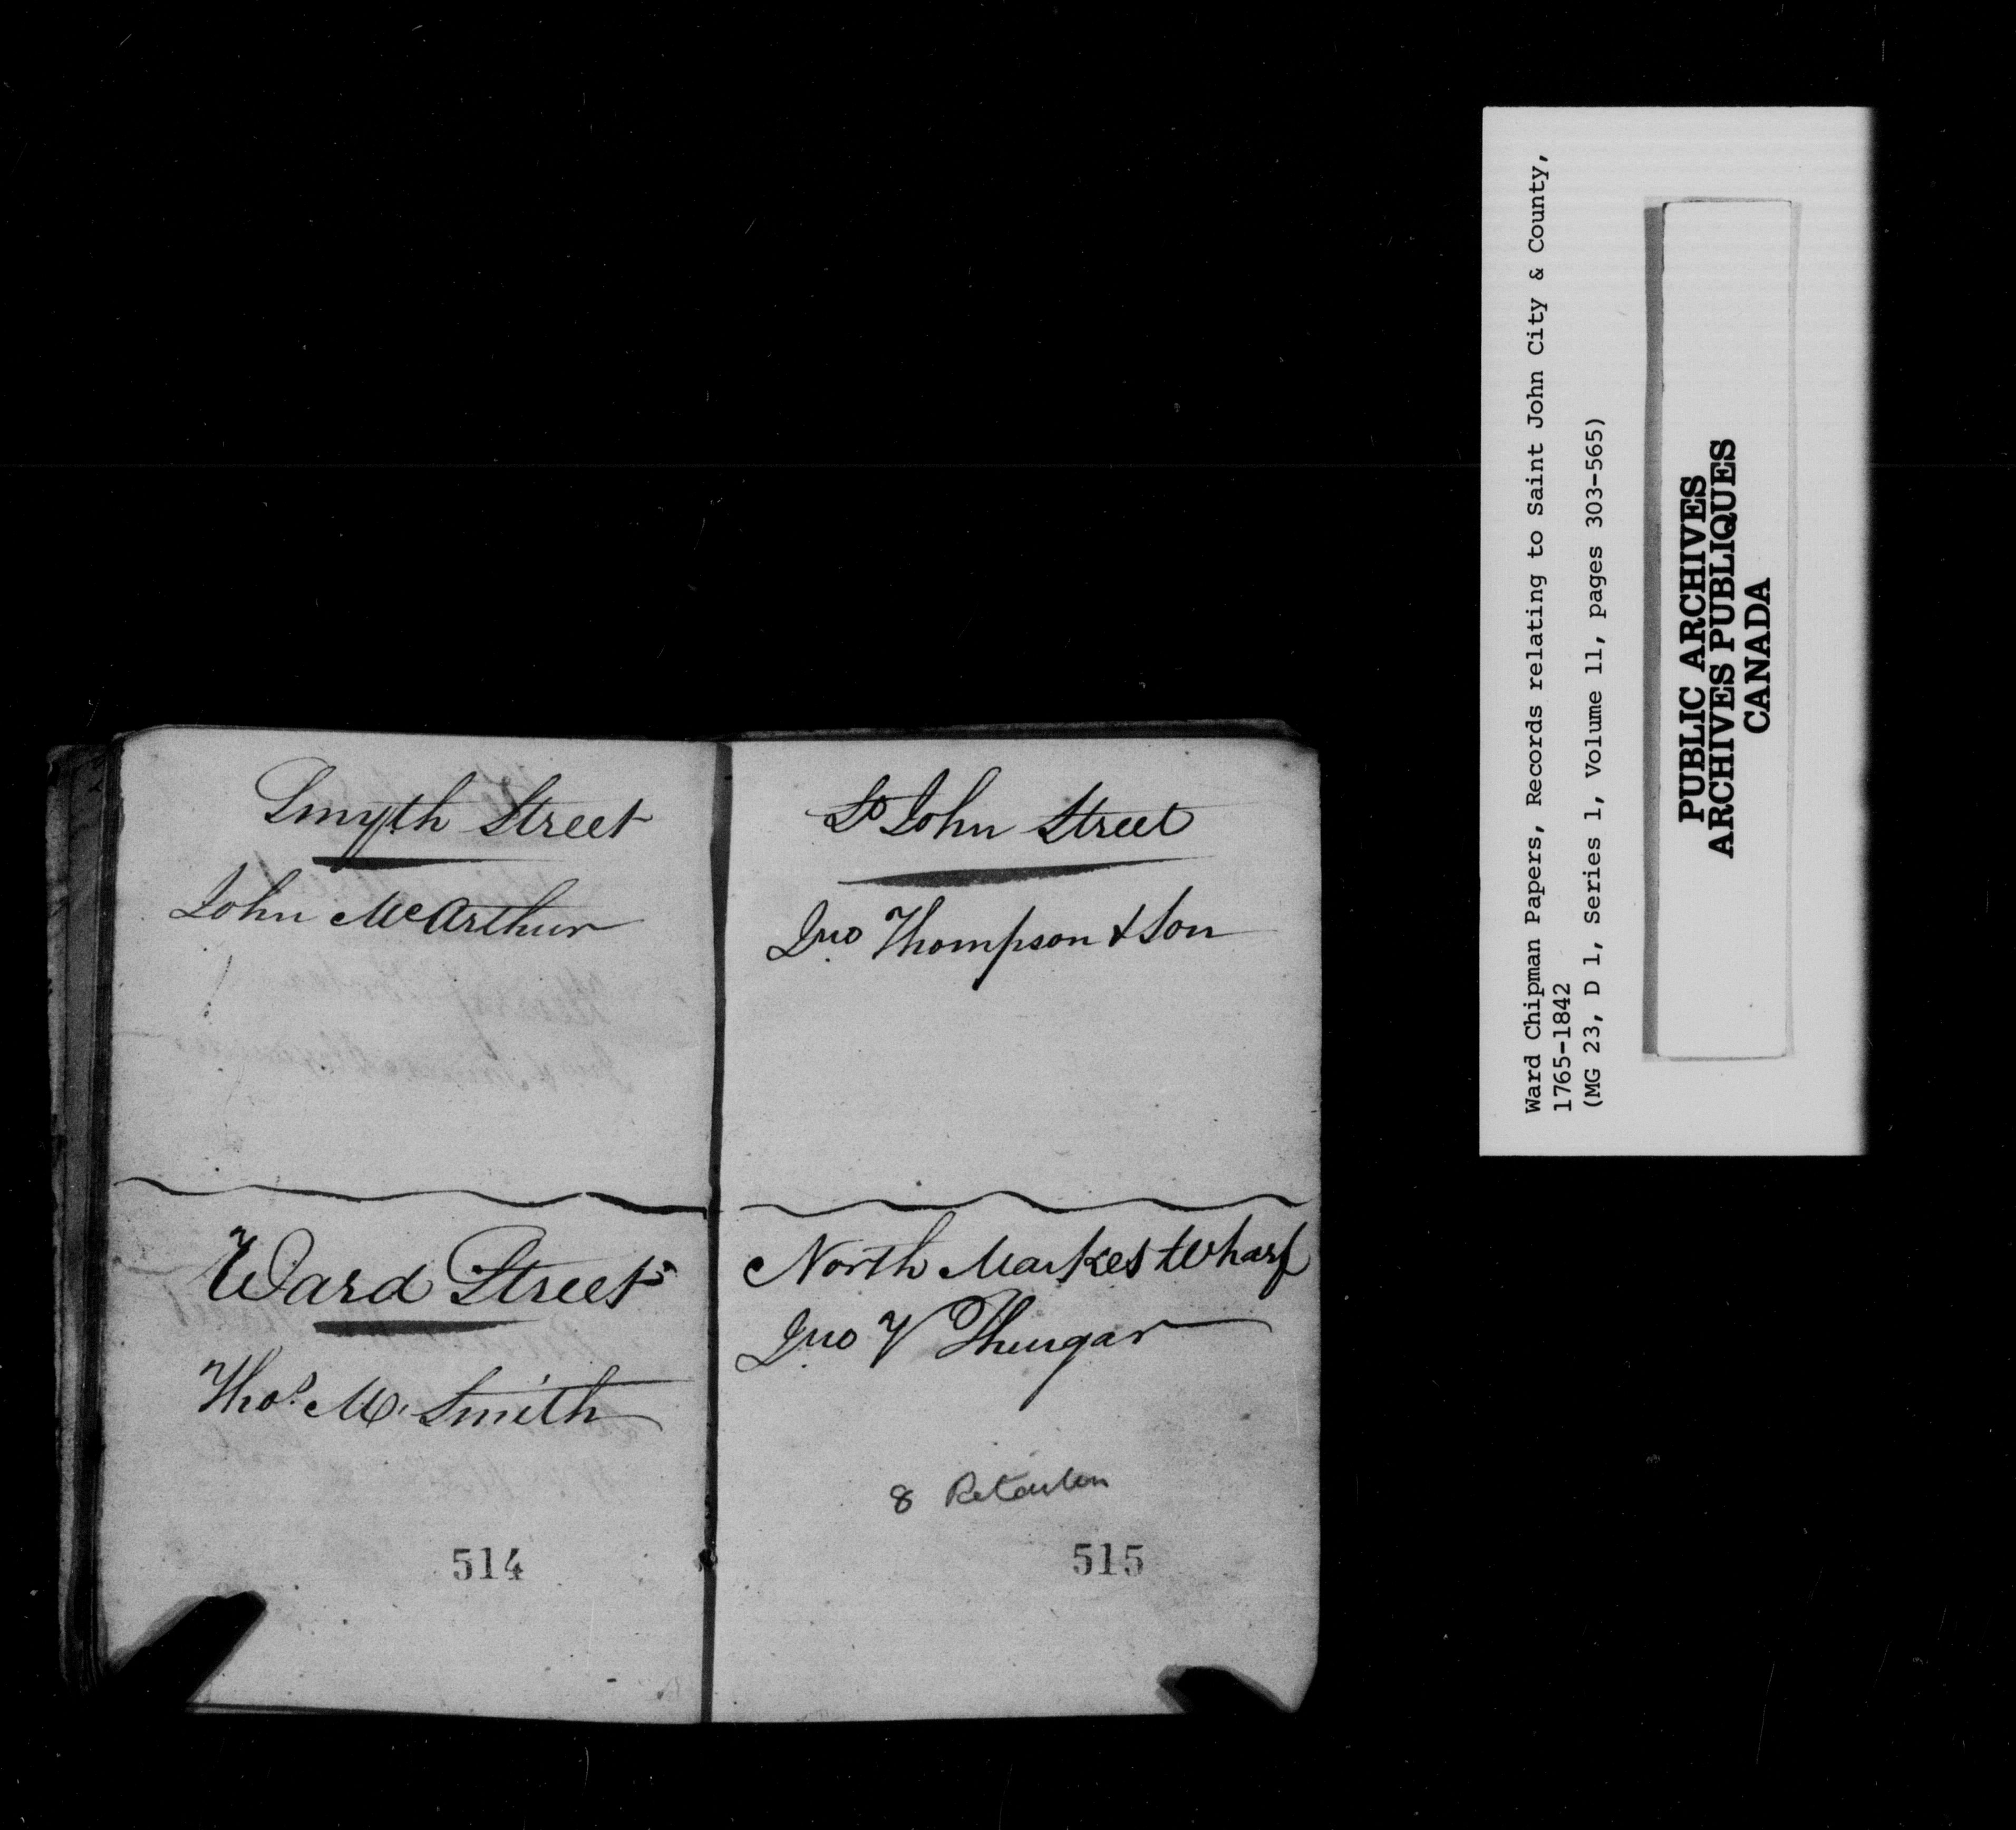 Smyth Street
John McArthur
Ward Street
Thos. M. Smith
514
St John Street
Jno Thompson & Son
North Market Wharf
Jno V Thurgar
8 Retailers
515
Ward Chipman Papers, Records relating to Saint John City & County,
1765-1842
(MG 23, D 1, Series 1, Volume 11, pages 303-565)
PUBLIC ARCHIVES
ARCHIVES PUBLIQUES
CANADA